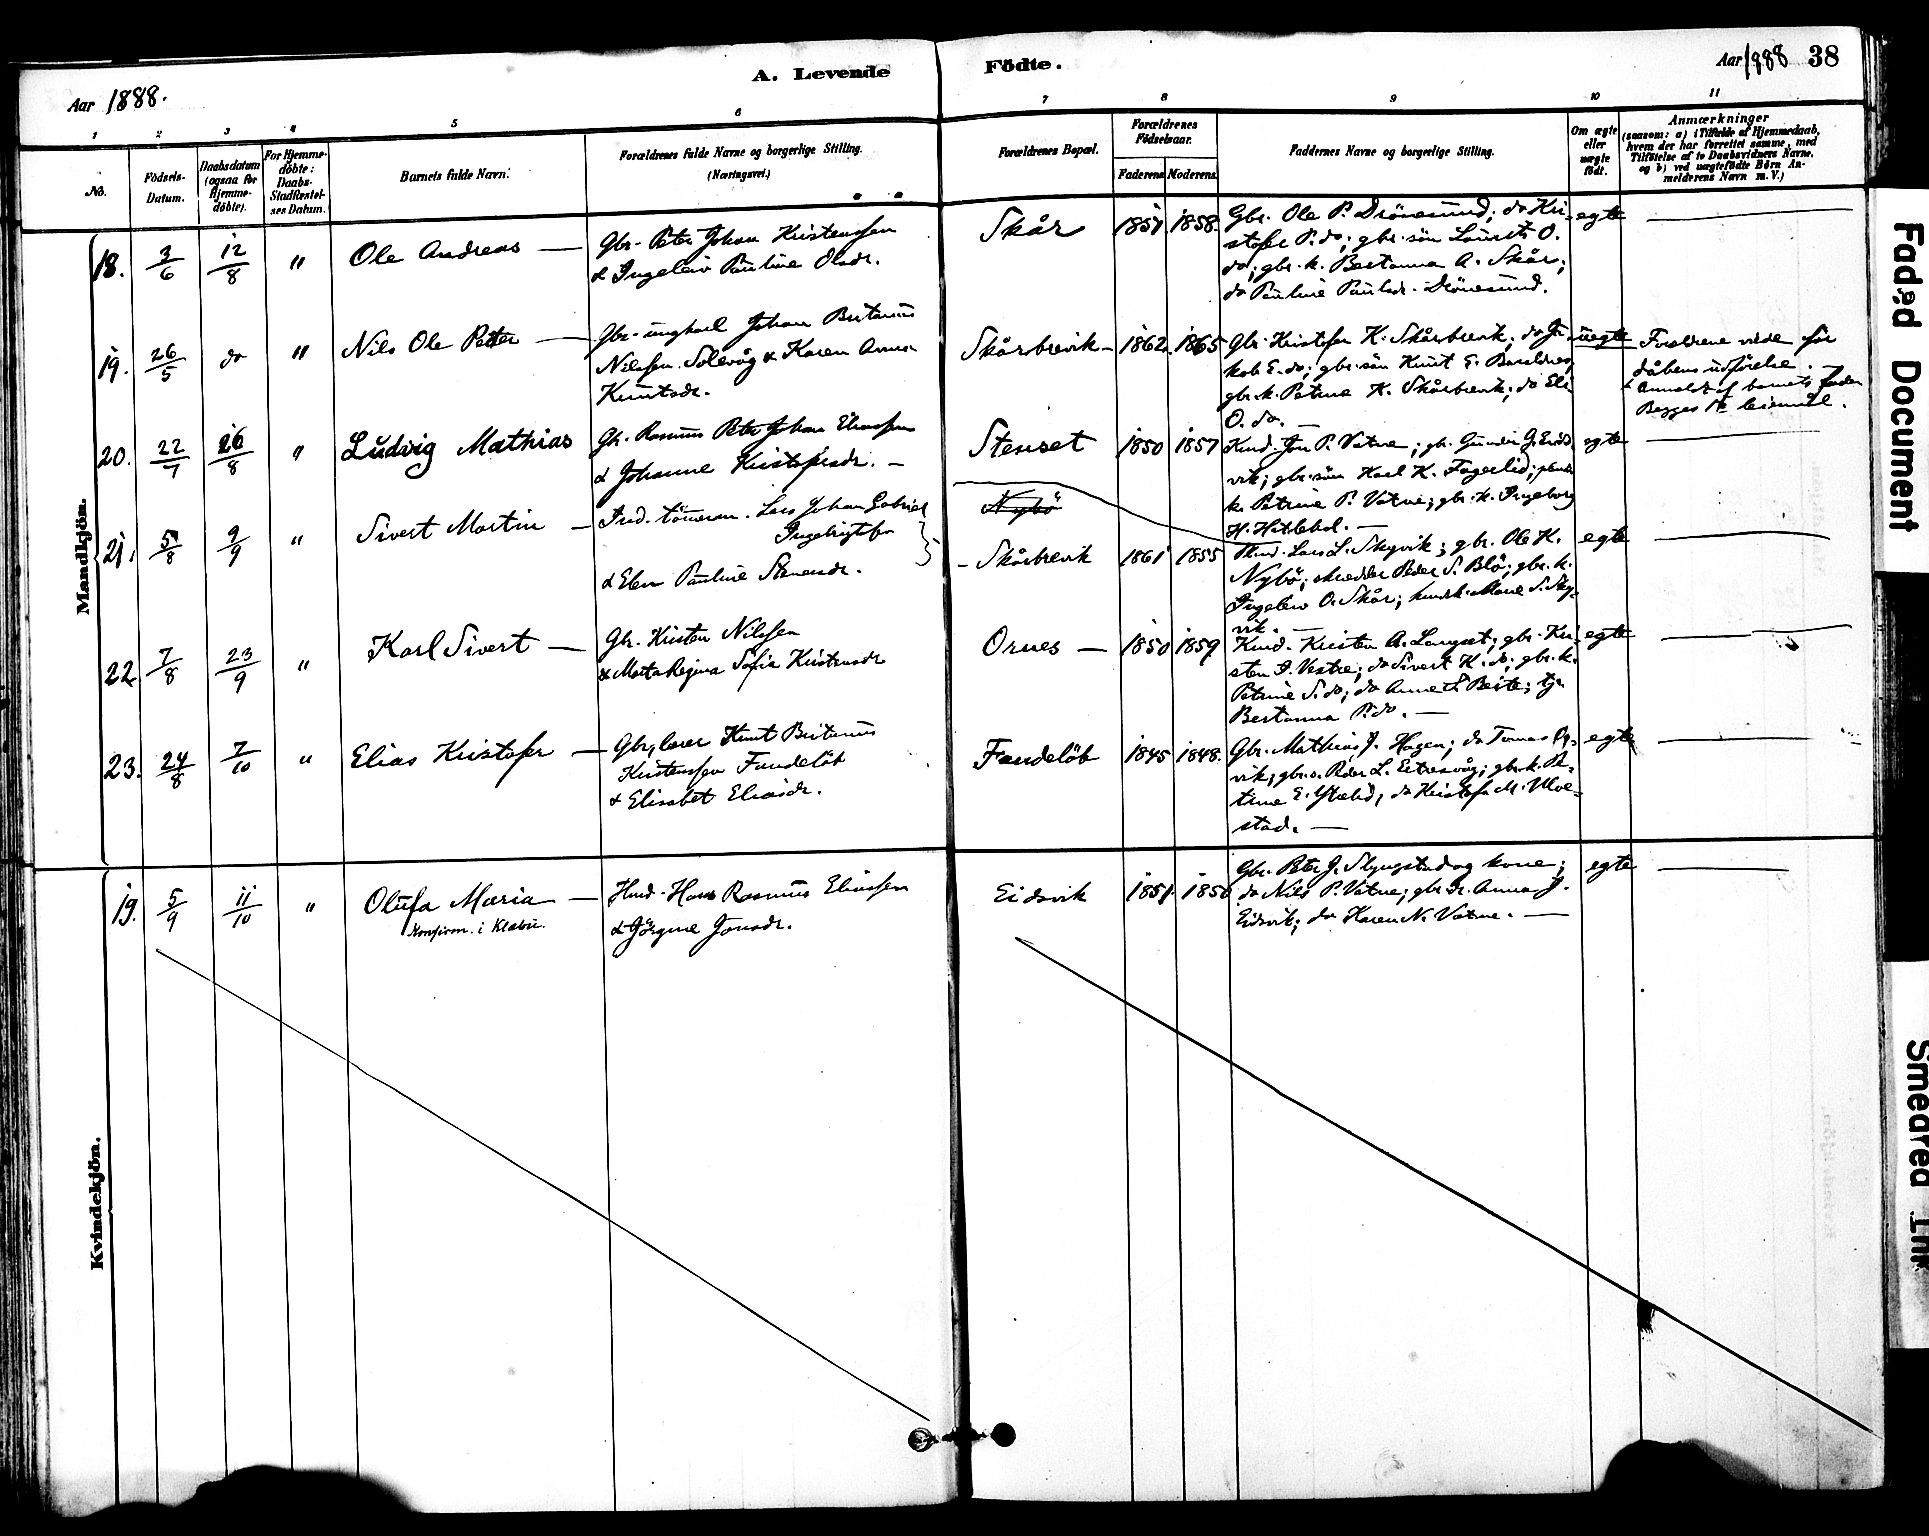 A. Levende Födte.
Aar 1888.
Aar 1888 38
1 2 3 4 5 6 7 8 9 10 11
No.
Födsels-
Datum.
Daabsdatum
(ogsaa for
Hjemme-
döbte).
For Hjemme-
döbte:
Daabs-
Stadfæstel-
ses Datum.
Barnets fulde Navn.
Forældrenes fulde Navne og borgerlige Stilling.
(Næringsvei.)
Forældrenes Bopæl.
Forældrenes
Födselsaar.
Faderens Moderens
Faddernes Navne og borgerlige Stilling.
Om ægte
eller
uægte
födt.
Anmærkninger
(saasom: a) i Tilfælde af Hjemmedaab,
hvem der har forrettet samme, med
Tilföielse af to Daabsvidners Navne,
og b) ved uægtefödte Börn An-
melderens Navn m. V.)
Mandkjön.
18. 3/6 12/8 " Ole Andreas —
Gbr. Peter Johan Kristensen
& Ingeleiv Pauline Olsdr.
Skår 1857 1858.
Gbr. Ole P. Drönesund; do Kri-
stofer P. do; gbr. sön Laurits O.
do; gbr. k. Bertanna A. Skår;
do Pauline Paulsdr. Drönesund.
egte
19. 26/5 do " Nils Ole Peter —
Gbr. ungkarl Johan Bertinus
Nilssen Solevåg & Karen Anna
Knutsdr.
Skårbrevik – 1862. 1865
Gbr. Kristofer K. Skårbrevik; do Ja-
kob E. do; gbr. sön Knut E.
gbr. k. Petrine K. Skårbrevik; do Eli
O. do. —
uegte
Forældrene viede før
dåbens udförelse.
Anmeldt af barnets fader
Begges 1ste leiermål.
20. 22/7 26/8 " Ludvig Mathias
Gbr. Rasmus Peter Johan Eliassen
& Johanne Kristofersdr. —
Stenset 1850 1857
Kmd. Jon P. Vatne; gbr. Gunder G. Eids-
vik; gbr. sön Karl K. Fagerlid;
k. Petrine P. Vatne; gbr. k. Ingeborg
H. Hatlehol. —
egte
21. 5/8 9/9 " Sivert Martin —
Ind. tömmerm. Lars Johan Gabriel
Ingebrigtsen
& Elen Pauline Stenersdr.
Nybö
– Skårbrevik 1861 1855
Kmd. Lars L. Skyvik; gbr. Ole K.
Nybö; skrædder Peder S. Blö; gbr. k.
Ingeleiv O. Skår; kmdsk. Mane S. Sky-
vik. —
egte
22 7/8 23/9 " Karl Sivert —
Gbr. Kristen Nilssen
& Marta Regina Sofie Kristensdr
Ornes — 1850 1859
Kmd. Kristen A. Langset; gbr. Kri-
sten S. Vestre; do Sivert K. do; gbr. k.
Petrine S. do; do Anne L. Beite; tj.
Bertanna P. do. —
egte
23. 24/8 7/10 " Elias Kristofer —
Gbr., lærer Knut Bertinus
Kristensen Fandelöb
& Elisabet Eliasdr.
Fandelöb 1845 1848.
Gbr. Mathias J. Hagen; do Tomas
vik; gbr. s. Peder L. Eitresvåg; gbr. k. Pe-
trine E. Ystelid; do Kristofa M. Ulve-
stad. —
egte
Kvindekjön.
19. 5/9 11/10 " Olufa Maria —
Konfirm. i Klæbu.
Hmd. Hans Rasmus Eliassen
& Jörgine Jonsdr.
Eidsvik 1851 1856
Gbr. Peter J. Slyngstad og kone;
do Nils P. Vatne; gbr. dr. Anna J.
Eidsvik; do Karen N. Vatne. —
egte
Faded Document
Smeared Ink